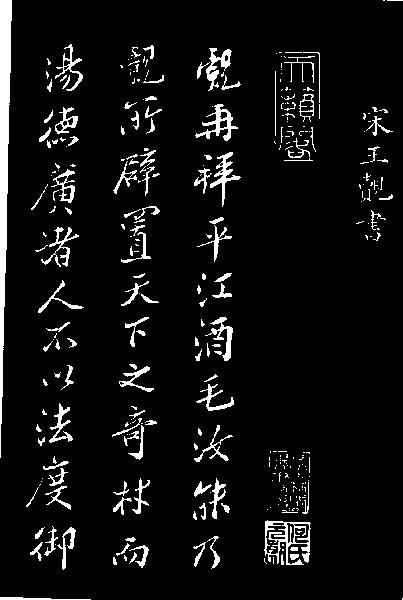 宋王觌書
天籟閣
覿再拜平江酒毛汝能乃
覿所辟置天下之奇材而
湯德廣者人不以法度御